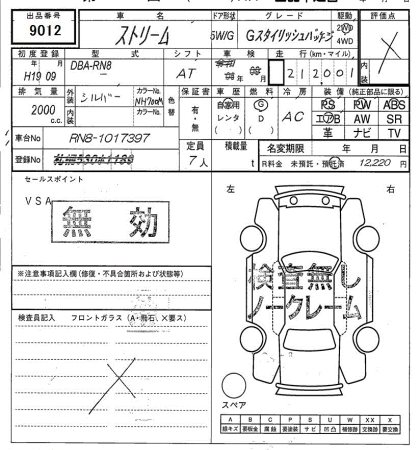 出品番号
9012
車名
ストリーム
ドア形状
5W/G
グレード
Gスタイリッシュパッケージ
駆動
2WD
4WD
評価点
初度登録
年 月
H19 09
型式
DBA-RN8
シフト
AT
車検
年 月
走行 (km・マイル)
212001
排気量
2000
c.c.
外装
シルバー
カラーNo.
NH700M
内装
カラーNo.
色替
保証書
有・無
車歴
自家用
レンタ
燃料
G
D
冷房
AC
装備 (純正部品に限る)
PS PW ABS
エアB AW SR
革 ナビ TV
車台No
RN8-1017397
定員
7人
積載量
t
名変期限 年 月 日
R料金 未預託・預託済 12,220 円
登録No
セールスポイント
VSA
無効
左
右
※注意事項記入欄(修復・不具合箇所および状態等)
検査員記入 フロントガラス (A・飛石、X要ス)
検査無し
ノークレーム
スペア
A B C P S U W XX X
線キズ 要板金 腐蝕 要塗装 サビ 凹凸 補修跡 交換跡 要交換